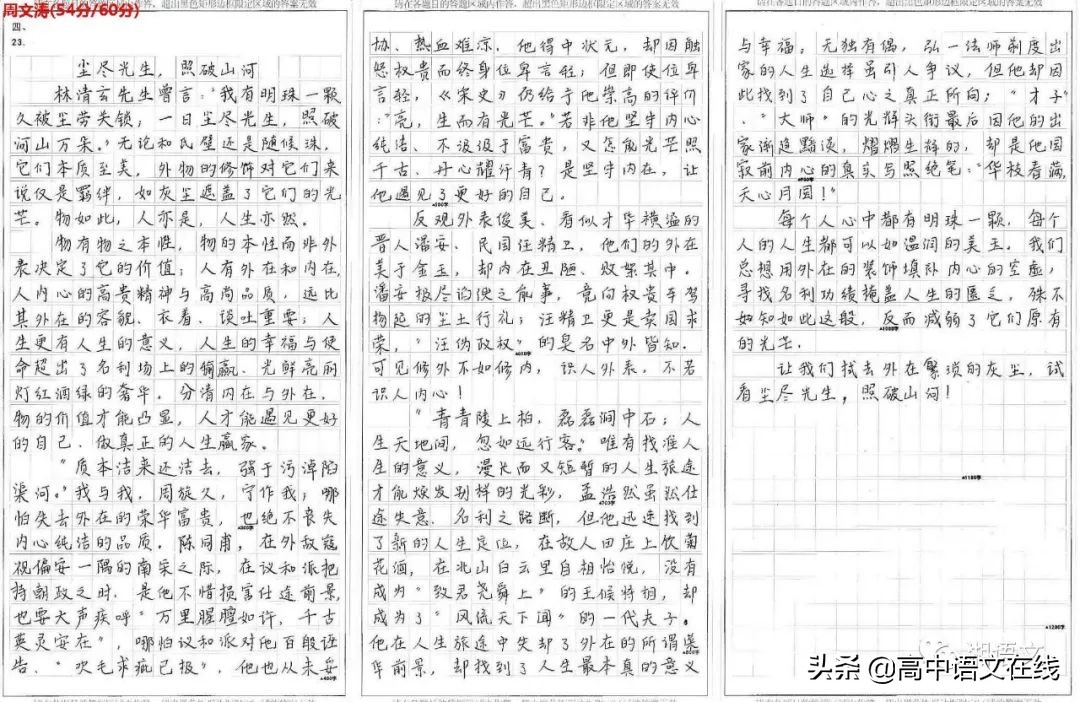 请在各题目的答题区域内作答,超出黑色矩形边框限定区域的答案无效
周文涛(54分/60分)
四、
23.
尘尽光生,照破山河
林清玄先生曾言:“我有明珠一颗
久被尘劳关锁;一日尘尽光生,照破
河山万朵。”无论和氏璧还是随候珠,
它们本质至美,外物的修饰对它们来
说仅是羁绊,如灰尘遮盖了它们的光
芒。物如此,人亦是,人生亦然。
物有物之本性,物的本性而非外
表决定了它的价值;人有外在和内在,
人内心的高贵精神与高尚品质,远比
其外在的容貌、衣着、谈吐重要;人
生更有人生的意义,人生的幸福与使
命超出了名利场上的输赢、光鲜亮丽
灯红酒绿的奢华。分清内在与外在,
物的价值才能凸显,人才能遇见更好
的自己,做真正的人生赢家。
“质本洁来还洁去,强于污淖陷
渠沟。”我与我,周旋久,宁作我;哪
怕失去外在的荣华富贵,也绝不丧失
内心纯洁的品质。陈同甫,在外敌寇
视偏安一隅的南宋之际,在议和派把
持朝政之时,是他不惜损害仕途前景,
也要大声疾呼“万里腥膻如许,千古
英灵安在”,哪怕议和派对他百般诬
告、“吹毛求疵已极”,他也从未妥
协、热血难凉,他得中状元,却因触
怒权贵而终身位卑言轻;但即使位卑
言轻,《宋史》仍给予他崇高的评价
:“亮,生而有光芒。”若非他坚守内心
纯洁、不汲汲于富贵,又怎能光芒照
千古、丹心耀汗青?是坚守内在,让
他遇见了更好的自己。
反观外表俊美、看似才华横溢的
晋人潘安、民国汪精卫,他们的外在
美于金玉,却内在丑陋、败絮其中。
潘安极尽谄谀之能事,竟向权贵车驾
扬起的尘土行礼;汪精卫更是卖国求
荣,“汪伪政权”的臭名中外皆知。
可见修外不如修内,识人外表,不若
识人内心!
“青青陵上柏,磊磊涧中石;人
生天地间,忽如远行客。”唯有找准人
生的意义,漫长而又短暂的人生旅途
才能焕发别样的光彩,孟浩然虽然仕
途失意、名利之路断,但他迅速找到
了新的人生定位,在故人田庄上饮菊
花酒,在北山白云里自相怡悦,没有
成为“致君尧舜上”的王候将相,却
成为了“风流天下闻”的一代夫子。
他在人生旅途中失却了外在的所谓荣
华前景,却找到了人生最本真的意义
与幸福;无独有偶,弘一法师剃度出
家的人生选择虽引人争议,但他却因
此找到了自己心之真正所向;“才子”
、“大师”的光辉头衔最后因他的出
家渐趋黯淡,熠熠生辉的,却是他圆
寂前内心的真实与照绝笔:“华枝春满,
天心月圆!”
每个人心中都有明珠一颗,每个
人的人生都可以如温润的美玉。我们
总想用外在的装饰填补内心的空虚,
寻找名利功绩掩盖人生的匮乏,殊不
知如此这般,反而减弱了它们原有
的光芒。
让我们拭去外在繁琐的灰尘,试
看尘尽光生,照破山河!
头条 @高中语文在线